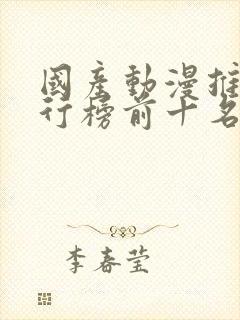 國產動漫推
行榜前十名
李春莹